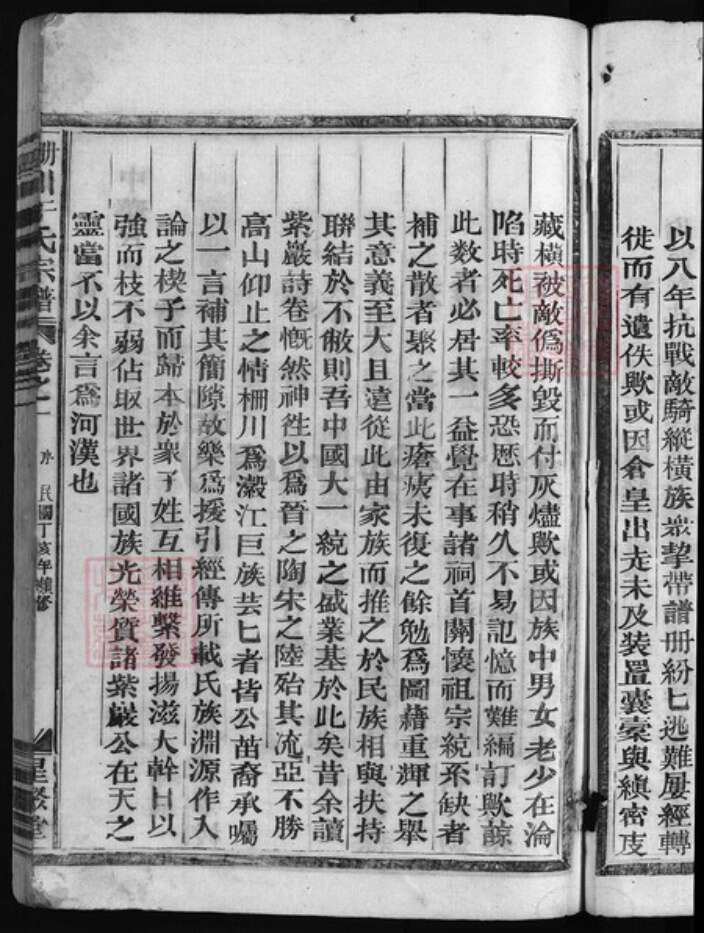 以八年抗戰敵騎縱橫族衆挈帶譜册紛匕逃難屢經轉
徙而有遺佚歟或因倉皇出走未及装置囊橐與縝密庋
藏橫被敵僞撕毀而付灰燼歟或因族中男女老少在淪
陷時死亡率較多恐歷時稍久不易記憶而難編訂歟諒
此數者必居其一益覺在事諸祠首關懷祖宗統系缺者
補之散者聚之當此瘡痍未復之餘勉爲圖藉重輝之舉
其意義至大且遠從此由家族而推之於民族相與扶持
聯結於不敝則吾中國大一統之盛業基於此矣昔余讀
紫巖詩卷慨然神徃以爲晉之陶宋之陸殆其流亞不勝
高山仰止之情柵川爲瀔江巨族芸匕者皆公苗裔承囑
以一言補其簡隙故樂爲援引經傳所載氏族淵源作入
論之楔子而歸本於衆子姓互相維繫發揚滋大幹日以
強而枝不弱佔取世界諸國族光榮質諸紫巖公在天之
靈當不以余言爲河漢也
柵川于氏宗譜 卷之一 序 民國丁亥年續修 星聚堂